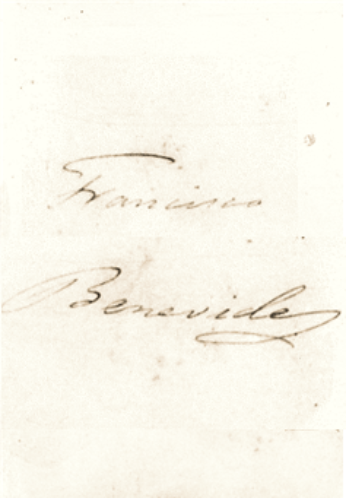 Francisco
Benevides